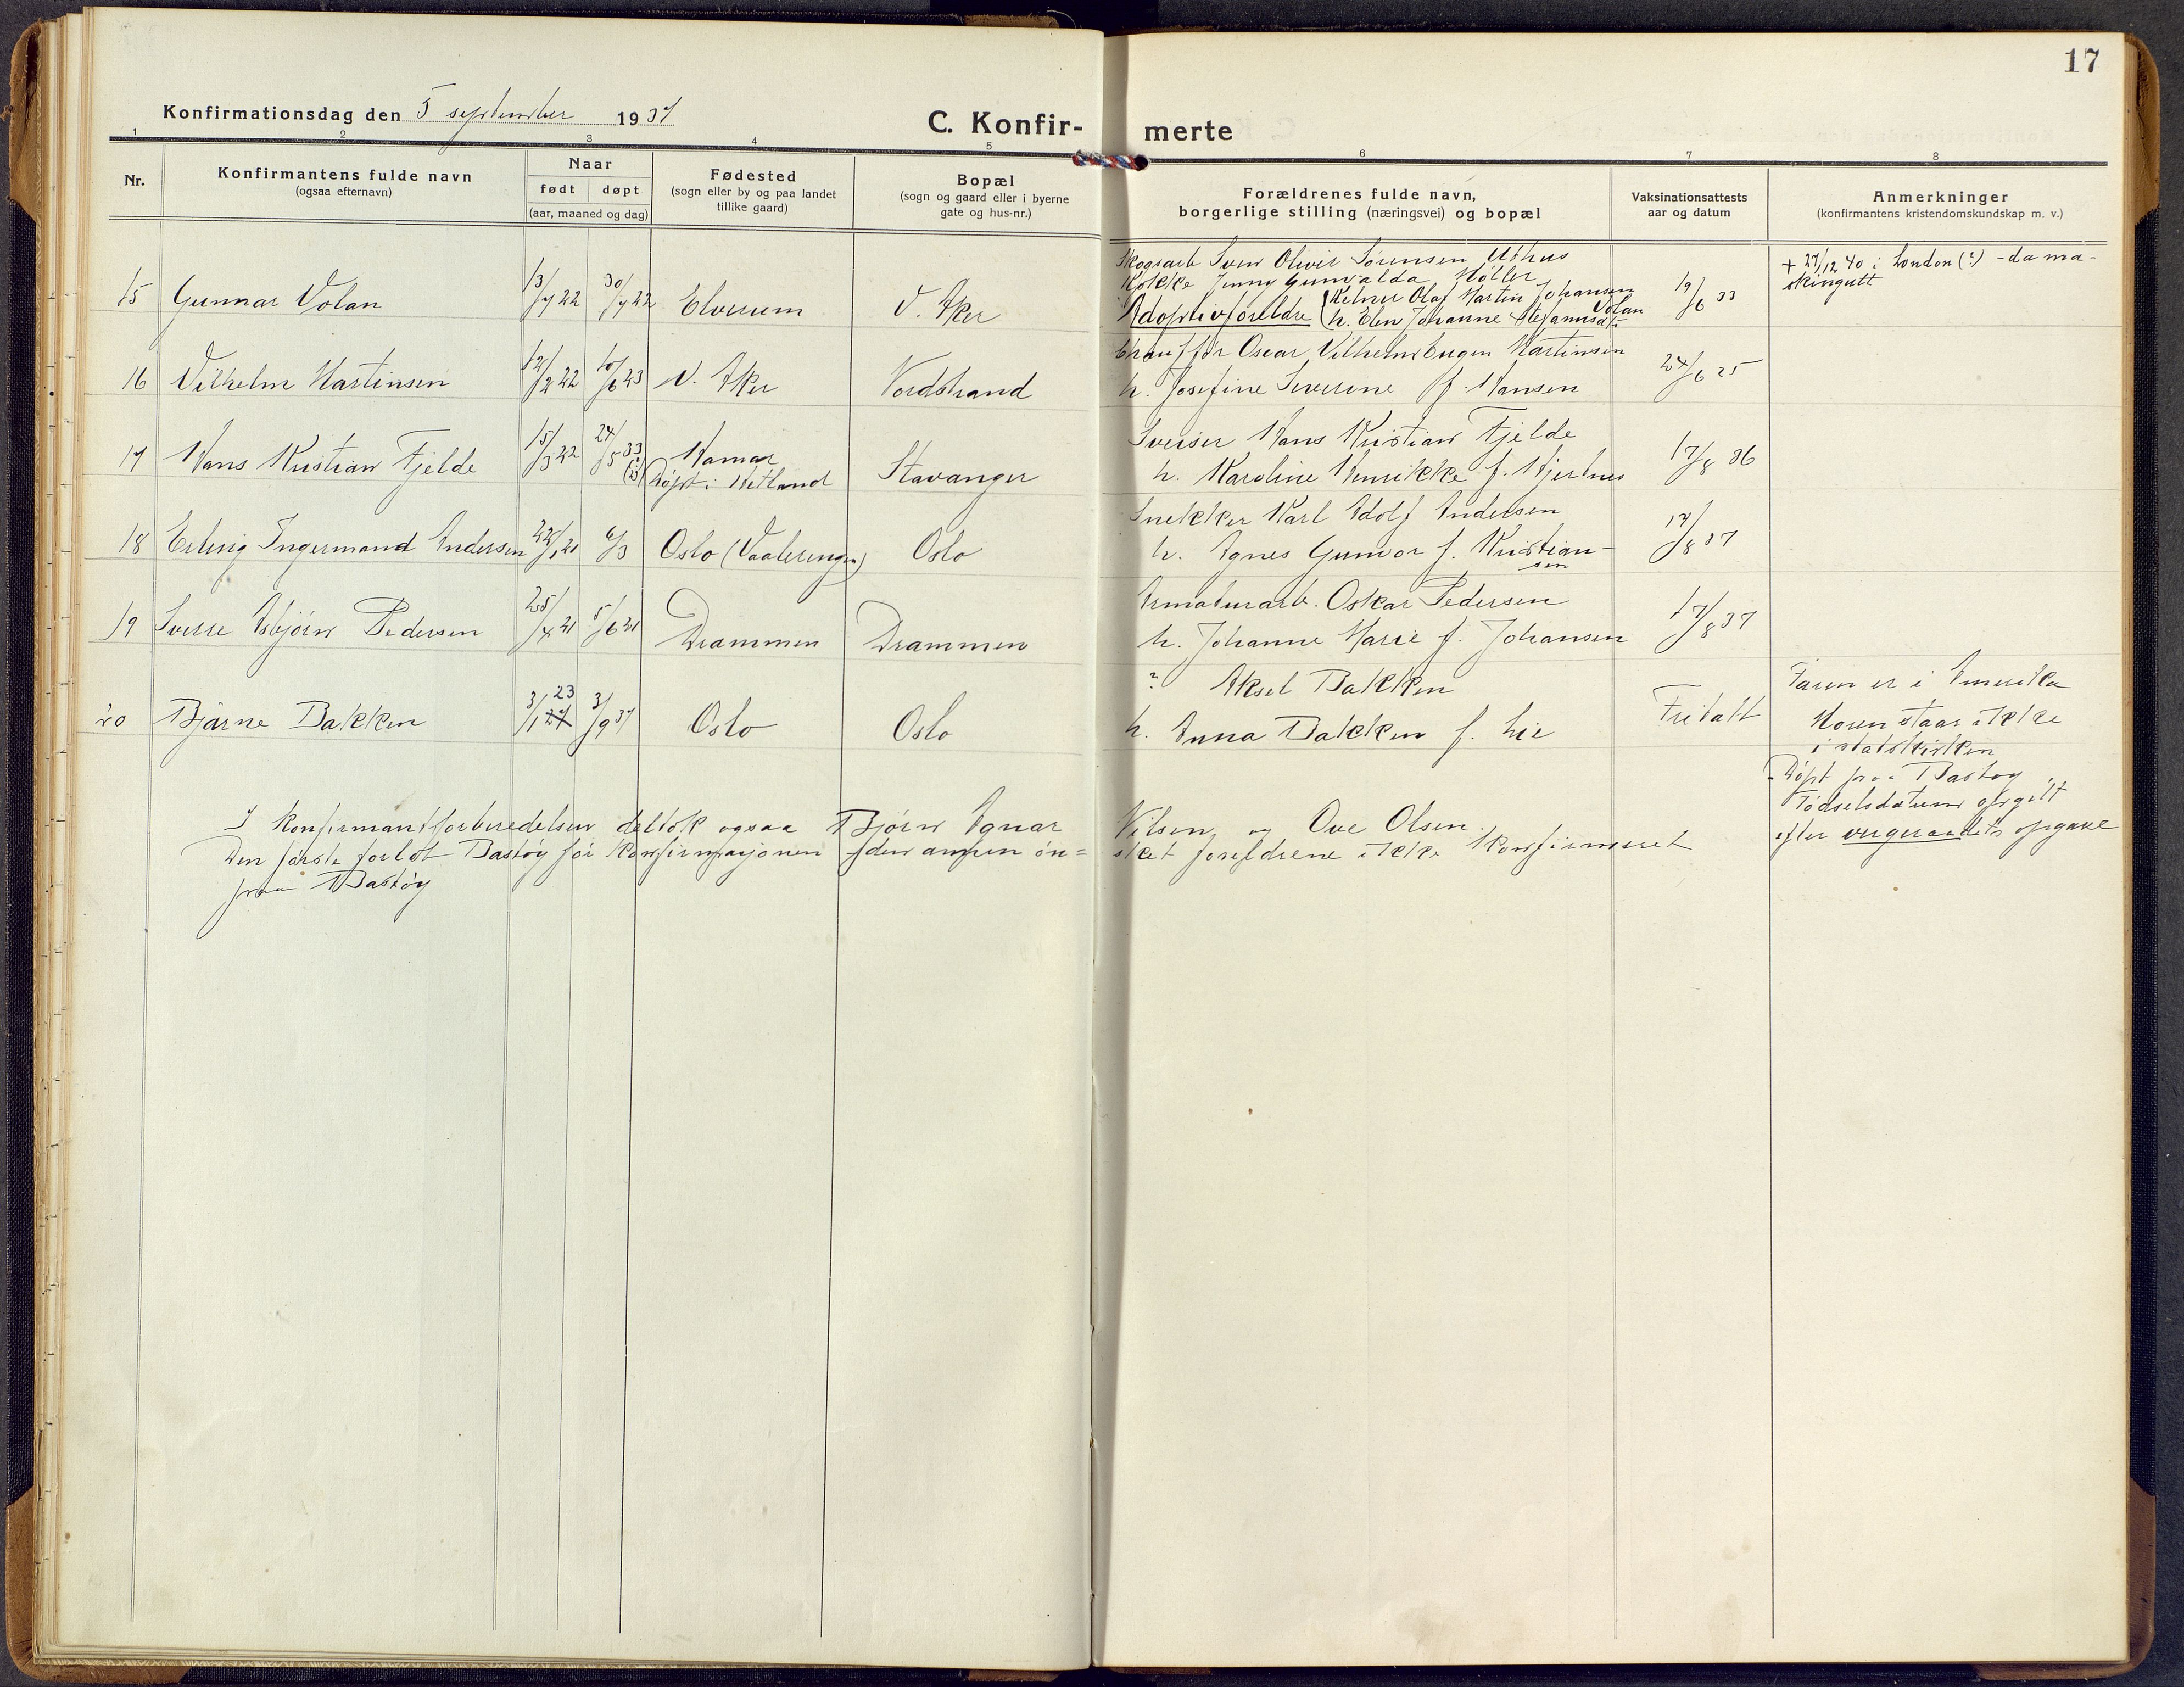 17
Konfirmationsdag den 5 september 1937
C. Konfir- merte
1 2 3 4 5 6 7 8
Nr.
Konfirmantens fulde navn
(ogsaa efternavn)
Naar
født døpt
(aar, maaned og dag)
Fødested
(sogn eller by og paa landet
tillike gaard)
Bopæl
(sogn og gaard eller i byerne
gate og hus-nr.)
Forældrenes fulde navn,
borgerlige stilling (næringsvei) og bopæl
Vaksinationsattests
aar og datum
Anmerkninger
(konfirmantens kristendomskundskap m. v.)
15 Gunnar Volan 13/7 22 30/7 22 Elverum V. Aker
Skogsarb Sven Oliver Sørensen Uthus
Kokke Jenny Gunvalda Møller
Adoptivforeldre Kelner Olaf Martin Johansen Volan
h. Elen Johanne
19/6 33
+ 27/12 40 i London (?) - da ma-
skingutt
16 Vilhelm Martinsen 12/12 22 10/6 23 V. Aker Nordstrand
Chauffør Oscar Vilhelm Eugen Martinsen
h. Josefine Severine f. Hansen
24/6 25
17 Hans Kristian Fjelde 15/3 22 24/5 33 (?) Hamar
Døpt i Hetland Stavanger
Sveiser Hans Kristian Fjelde
h. Karoline Henrikke f. Hjertnes
17/8 36
18 Erling Ingermand Andersen 22/1 21 6/3 Oslo (Vaalerengen) Oslo
Snekker Karl Adolf Andersen
h. Agnes Gunvor f. Kristian-
sen
17/8 37
19 Sverre Asbjørn Pedersen 25/4 21 5/6 21 Drammen Drammen
Armaturarb. Oskar Pedersen
h. Johanne Marie f. Johansen
17/8 37
20 Bjarne Bakken 3/1 23 3/9 37 Oslo Oslo
? Aksel Bakken
h. Anna Bakken f. Lie
Fritatt
Faren er i Amerika
Moren staar ikke
i statskirken
Døpt paa Bastøy
Fødselsdatum opgitt
efter vergeraadets opgave
I konfirmantforberedelsen deltok ogsaa Bjørn Agnar Nilsen og Ove Olsen.
Den første forlot Bastøy før konfirmasjonen den annen øn=sket foreldrene ikke konfirmeret
paa Bastøy